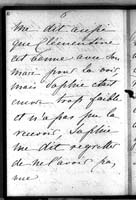 6
me dit aussi
que Clémentine
est venue avec son
mari pour la voir,
mais Sophie était
encore trop faible
et n'a pas pu la
recevoir, Sophie
me dit regretter
de ne l'avoir pas
vue